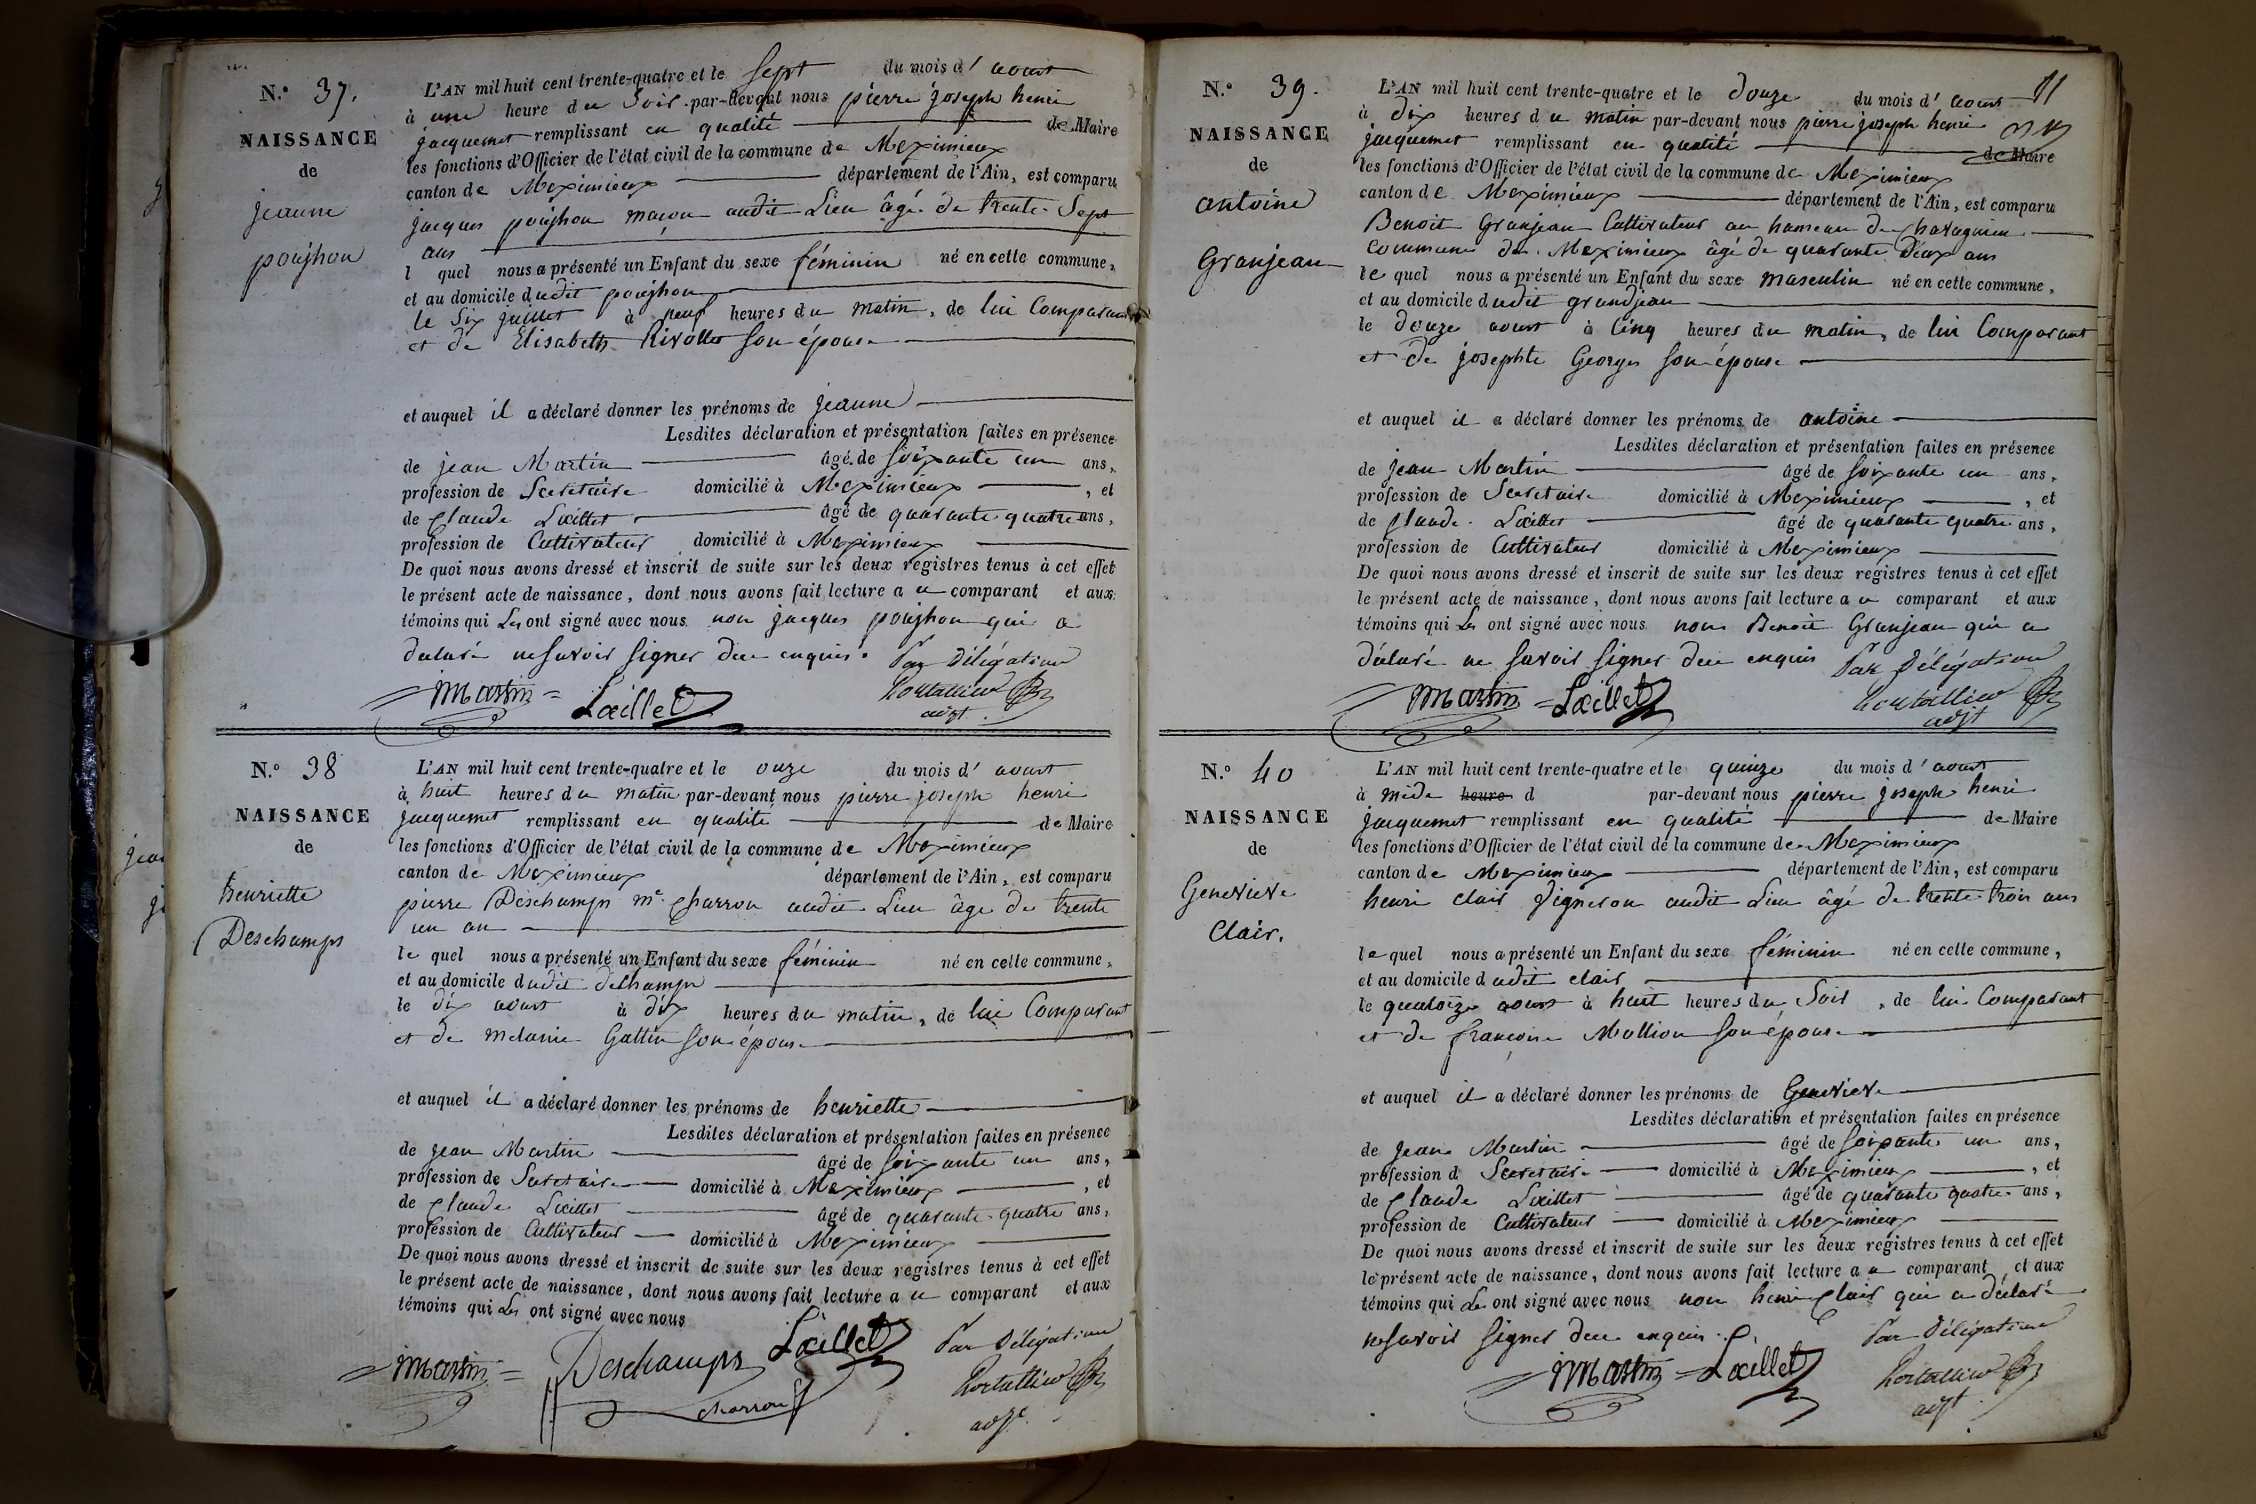 N.° 37.
NAISSANCE
de
jeanne
poujhon
L'AN mil huit cent trente-quatre et le Sept du mois d' aoust
à une heure du Soir par-devant nous pierre joseph henri
jacquemet remplissant en qualité de Maire
les fonctions d'Officier de l'état civil de la commune de Meximieux
canton de Meximieux département de l'Ain, est comparu
jacques poujhon maçon audit Lieu âgé de trente Sept
ans
l quel nous a présenté un Enfant du sexe féminin né en cette commune,
et au domicile dudit poujhon
le Six juillet à neuf heures du matin, de lui Comparant
et de Elisabeth Rivollet Son épouse
et auquel il a déclaré donner les prénoms de jeanne
Lesdites déclaration et présentation faites en présence
de jean Martin âgé de Soixante un ans,
profession de Secretaire domicilié à Meximieux , et
de Claude Lœillet âgé de quarante quatre ans,
profession de Cultivateur domicilié à Meximieux
De quoi nous avons dressé et inscrit de suite sur les deux registres tenus à cet effet
le présent acte de naissance, dont nous avons fait lecture a u comparant et aux
témoins qui Les ont signé avec nous non jacques poujhon qui a
déclaré ne Savoir Signer de ce enquis. Par Délégation
Martin Lœillet Portallier
adjt.
N.° 38
NAISSANCE
de
henriette
Deschamps
L'AN mil huit cent trente-quatre et le onze du mois d' aoust
à huit heures du matin par-devant nous pierre joseph henri
jacquemet remplissant en qualité de Maire
les fonctions d'Officier de l'état civil de la commune de Meximieux
canton de Meximieux département de l'Ain, est comparu
pierre Deschamps me. Charron audit Lieu âgé de trente
un an
le quel nous a présenté un Enfant du sexe féminin né en cette commune,
et au domicile dudit dechamps
le dix aoust à dix heures du matin, de lui Comparant
et de melanie Gattin Son épouse
et auquel il a déclaré donner les prénoms de henriette
Lesdites déclaration et présentation faites en présence
de jean Martin âgé de Soixante un ans,
profession de Secretaire domicilié à Meximieux , et
de Claude Lœillet âgé de quarante quatre ans,
profession de Cultivateur domicilié à Meximieux
De quoi nous avons dressé et inscrit de suite sur les deux registres tenus à cet effet
le présent acte de naissance, dont nous avons fait lecture a u comparant et aux
témoins qui Les ont signé avec nous
Martin Deschamps Lœillet Par Délégation
charron Portallier
adjt.
11
N.° 39.
NAISSANCE
de
antoine
Granjean
L'AN mil huit cent trente-quatre et le douze du mois d' aoust
à dix heures du matin par-devant nous pierre joseph henri
jacquemet remplissant en qualité de Maire
les fonctions d'Officier de l'état civil de la commune de Meximieux
canton de Meximieux département de l'Ain, est comparu
Benoit Granjean Cultivateur au hameau de
Commune de Meximieux âgé de quarante Deux ans
le quel nous a présenté un Enfant du sexe masculin né en cette commune,
et au domicile dudit grandjean
le douze aoust à Cinq heures du matin, de lui Comparant
et de josephte Georges Son épouse
et auquel il a déclaré donner les prénoms de antoine
Lesdites déclaration et présentation faites en présence
de jean Martin âgé de Soixante un ans,
profession de Secretaire domicilié à Meximieux , et
de Claude Lœillet âgé de quarante quatre ans,
profession de Cultivateur domicilié à Meximieux
De quoi nous avons dressé et inscrit de suite sur les deux registres tenus à cet effet
le présent acte de naissance, dont nous avons fait lecture a u comparant et aux
témoins qui Les ont signé avec nous non Benoit Granjean qui a
déclaré ne Savoir Signer de ce enquis Par Délégation
Martin Lœillet Portallier
adjt
N.° 40
NAISSANCE
de
Genevieve
Clair.
L'AN mil huit cent trente-quatre et le quinze du mois d' aoust
à midi heure d par-devant nous pierre joseph henri
jacquemet remplissant en qualité de Maire
les fonctions d'Officier de l'état civil de la commune de Meximieux
canton de Meximieux département de l'Ain, est comparu
henri clair Vigneron audit Lieu âgé de trente trois ans
le quel nous a présenté un Enfant du sexe féminin né en cette commune,
et au domicile dudit clair
le quatorze aoust à huit heures du Soir, de lui Comparant
et de françoise Mollion Son épouse
et auquel il a déclaré donner les prénoms de Genevieve
Lesdites déclaration et présentation faites en présence
de jean Martin âgé de Soixante un ans,
profession d Secretaire domicilié à Meximieux , et
de Claude Lœillet âgé de quarante quatre ans,
profession de Cultivateur domicilié à Meximieux
De quoi nous avons dressé et inscrit de suite sur les deux registres tenus à cet effet
le présent acte de naissance, dont nous avons fait lecture a u comparant et aux
témoins qui Les ont signé avec nous non henri Clair qui a déclaré
ne Savoir Signer de ce enquis. Par Délégation
Martin Lœillet Portallier
adjt.